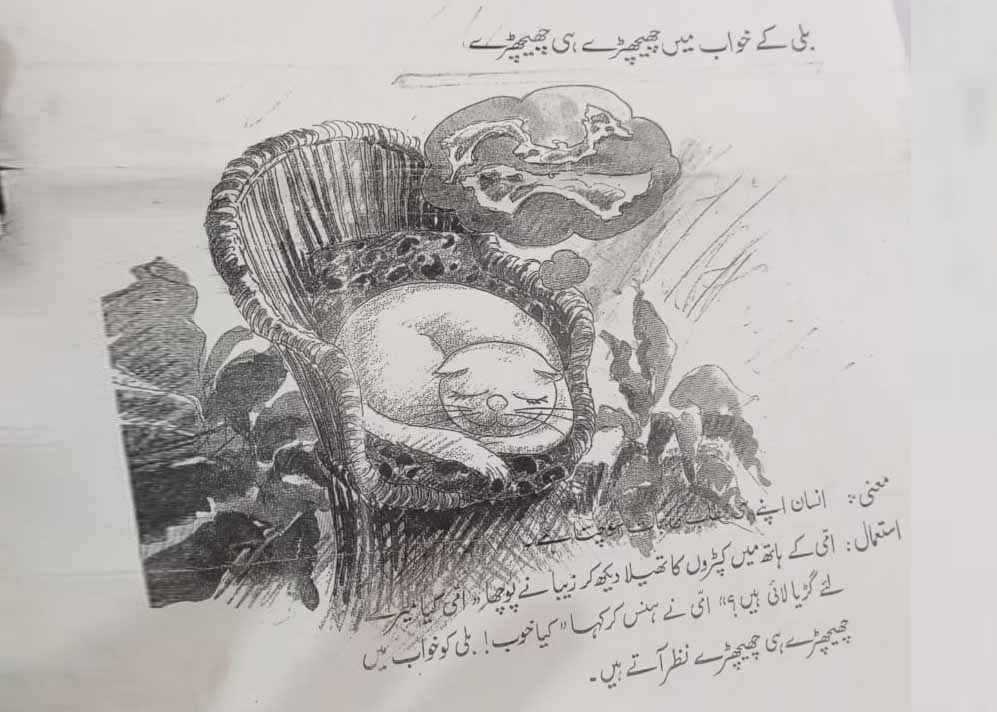 بلی کے خواب میں چھیچھڑے ہی چھیچھڑے
معنی: انسان اپنے ہی مطلب کی بات سوچتا ہے۔
استعمال: امّی کے ہاتھ میں کپڑوں کا تھیلا دیکھ کر زیبا نے پوچھا "امّی کیا میرے
لئے گڑیا لائی ہیں؟" امّی نے ہنس کر کہا "کیا خوب! بلی کو خواب میں
چھیچھڑے ہی چھیچھڑے نظر آتے ہیں۔